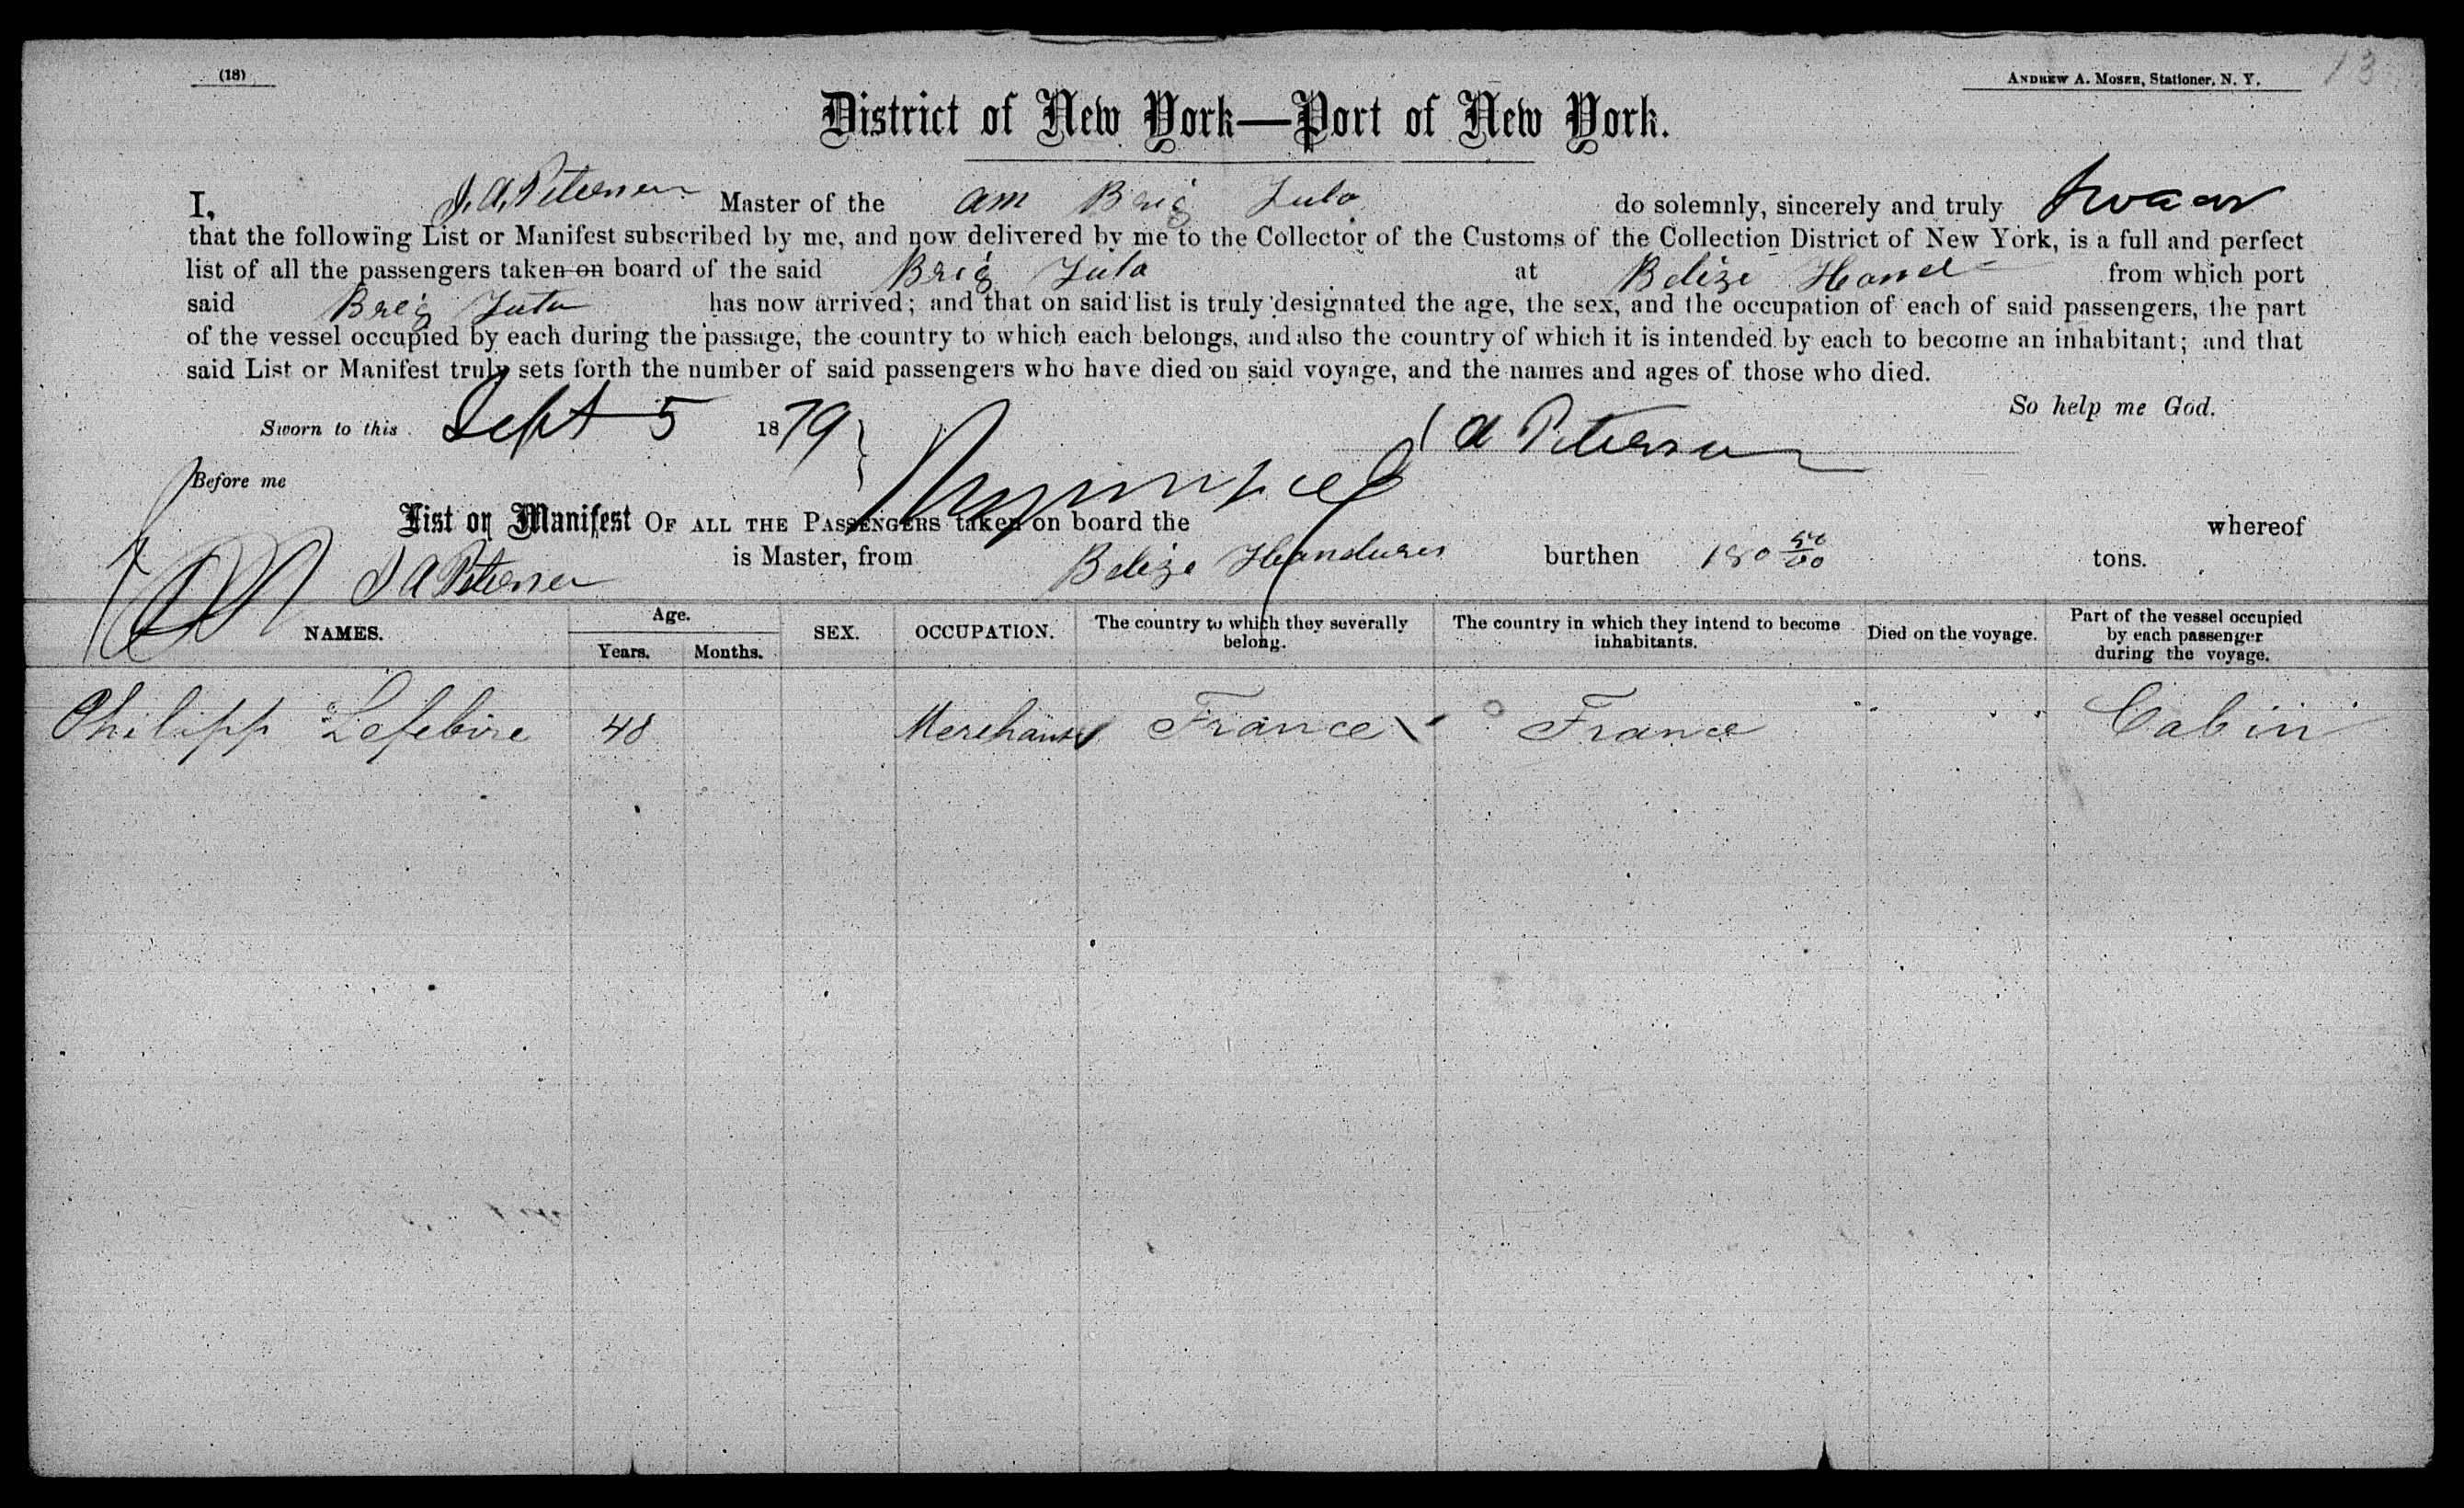 (18)
ANDREW A. MOSER, Stationer, N. Y.
13
District of New York—Port of New York.
I, J. A. Petersen Master of the Am Brig Tula do solemnly, sincerely and truly swear
that the following List or Manifest subscribed by me, and now delivered by me to the Collector of the Customs of the Collection District of New York, is a full and perfect
list of all the passengers taken on board of the said Brig Tula at Belize Hond from which port
said Brig Tula has now arrived; and that on said list is truly designated the age, the sex, and the occupation of each of said passengers, the part
of the vessel occupied by each during the passage, the country to which each belongs, and also the country of which it is intended by each to become an inhabitant; and that
said List or Manifest truly sets forth the number of said passengers who have died on said voyage, and the names and ages of those who died.
So help me God.
Sworn to this Sept 5 1879
J A Petersen
Before me
List or Manifest OF ALL THE PASSENGERS taken on board the whereof
J A Petersen is Master, from Belize Honduras burthen 180 tons.
NAMES. Age. Years. Months. SEX. OCCUPATION. The country to which they severally belong. The country in which they intend to become inhabitants. Died on the voyage. Part of the vessel occupied by each passenger during the voyage.
Philipp Lefebire 48 Merchant France France Cabin